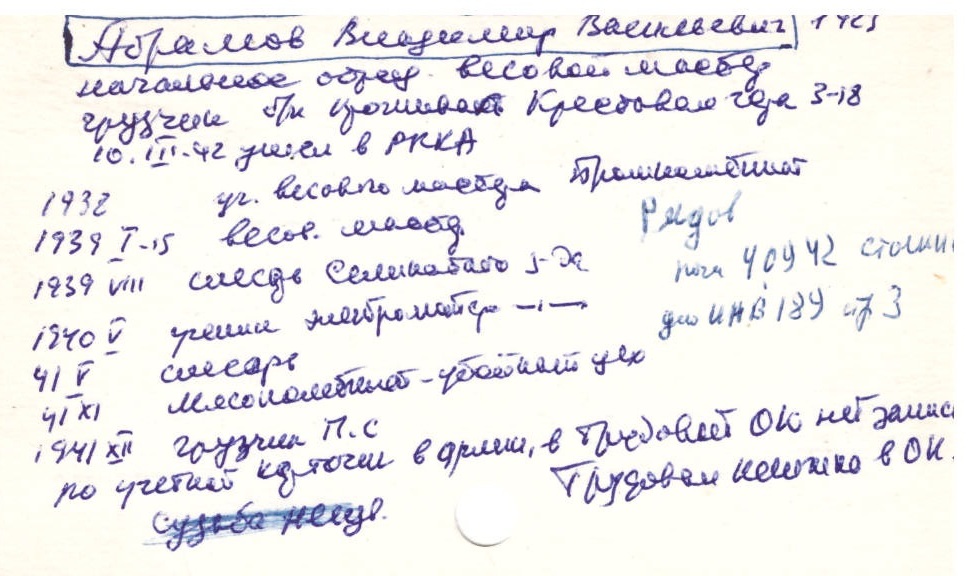 Абрамов Владимир Васильевич 1925
начальное образ. весовой мастер
грузчик проживал Крестовая 3-18
10.III-42 ушел в РККА
1932 уч. весового мастера Промкомбинат
1939 I-15 весов. мастер
1939 VIII слесарь
1940 V ученик электромонтера —"—
41 V слесарь
41 XI Мясокомбинат - убойный цех
1941 XII грузчик П.С
по учетной карточке в армии, в Трудовой ОК нет записи
Трудовая книжка в ОК.
Судьба неизв.
Рядов
погиб 40942
дло ИНВ 189 стр 3